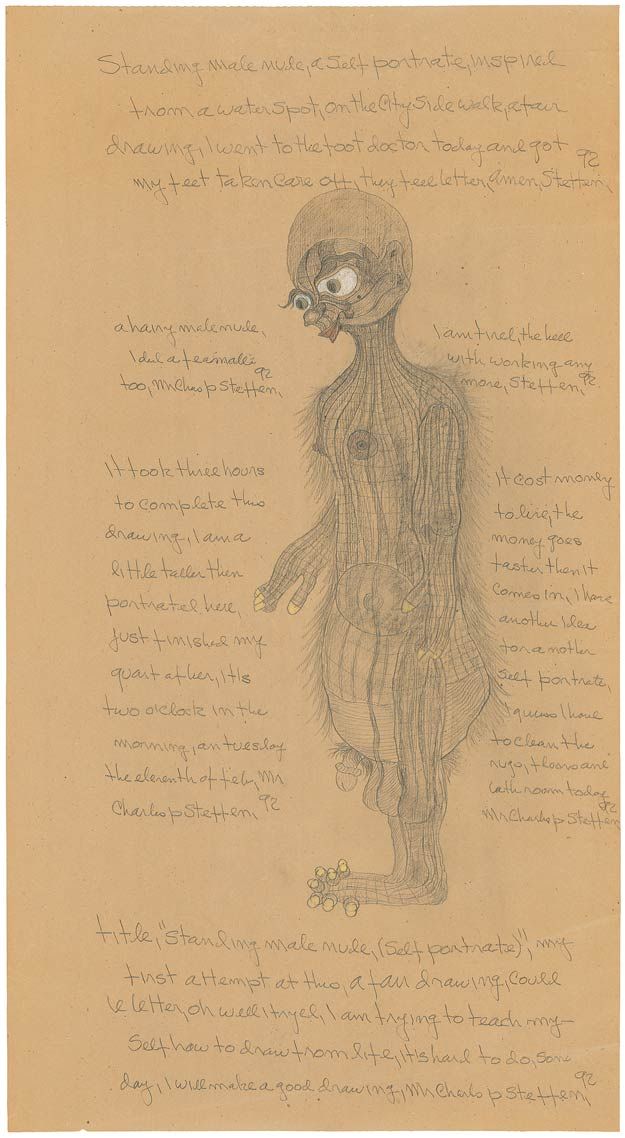 Standing male nude, a self portrate, inspired
from a water spot, on the City side walk, a fair
drawing, I went to the foot doctor today and got
92
my feet taken care off, they feel better, amen, Steffen,
a hairy male nude,
I did a feamalle
92
too, Mr Charles p Steffen,
I am tired, the heck
with working any
92
more, Steffen,
It took three hours
to complete this
drawing, I am a
little taller then
portrated here,
Just finished my
quart of beer, it is
two o'clock in the
morning, on tuesday
the eleventh of feb, Mr
92
Charles p Steffen,
It cost money
to live, the
money goes
faster then it
comes in, I have
another idea
for another
self portrate,
I guess I have
to clean the
rugs, floors and
bath room today
92
Mr Charles p Steffen
title, "Standing male nude, (self portrate)", my
first attempt at this, a fair drawing, Could
be better, oh well I tryed, I am trying to teach my-
self how to draw from life, it's hard to do, some
92
day, I will make a good drawing, Mr Charles p Steffen,